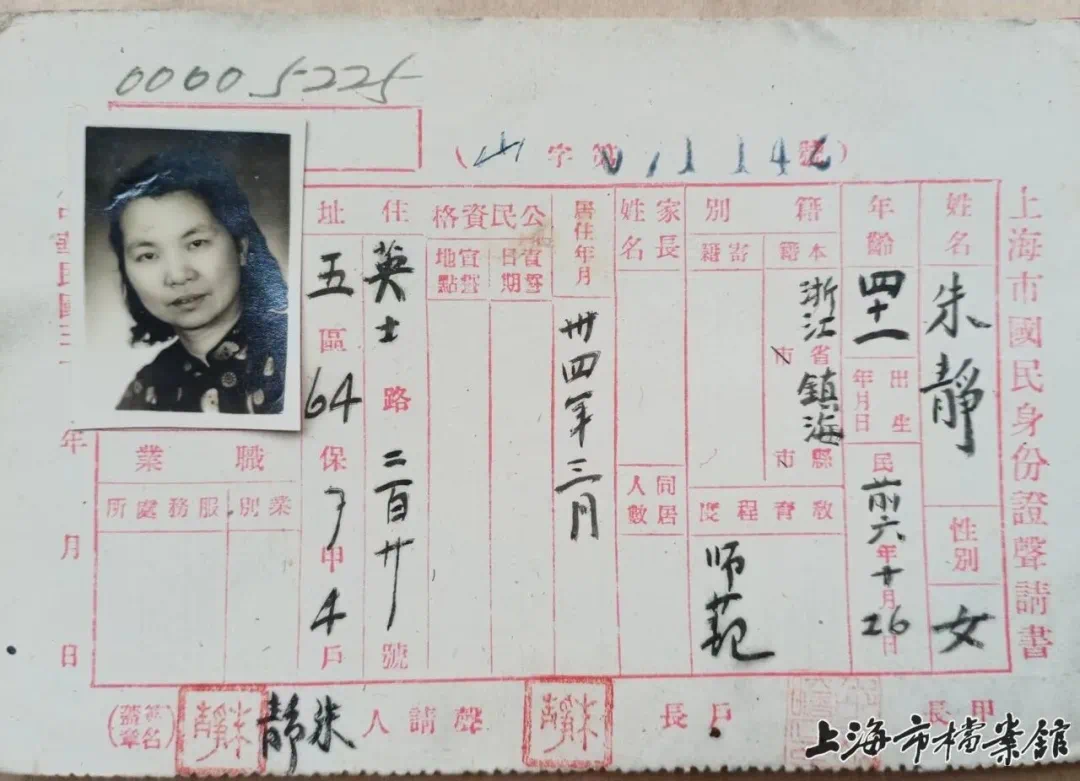 00005225
（山字第01142號）
上海市國民身份證聲請書
姓名
朱靜
性別
女
年齡
四十一
出生年月日
民前六年十月26日
籍別
本籍
浙江省市鎮海縣市
寄籍
教育程度
师范
家長姓名
同居人數
居住年月
卅四年三月
公民資格
宣誓日期
宣誓地點
住址
英士路二百廿號
五區64保7甲4戶
職業
業別
服務處所
年 月 日
甲長
戶長
朱靜
聲請人
朱靜
朱靜
（簽名蓋章）
上海市檔案館